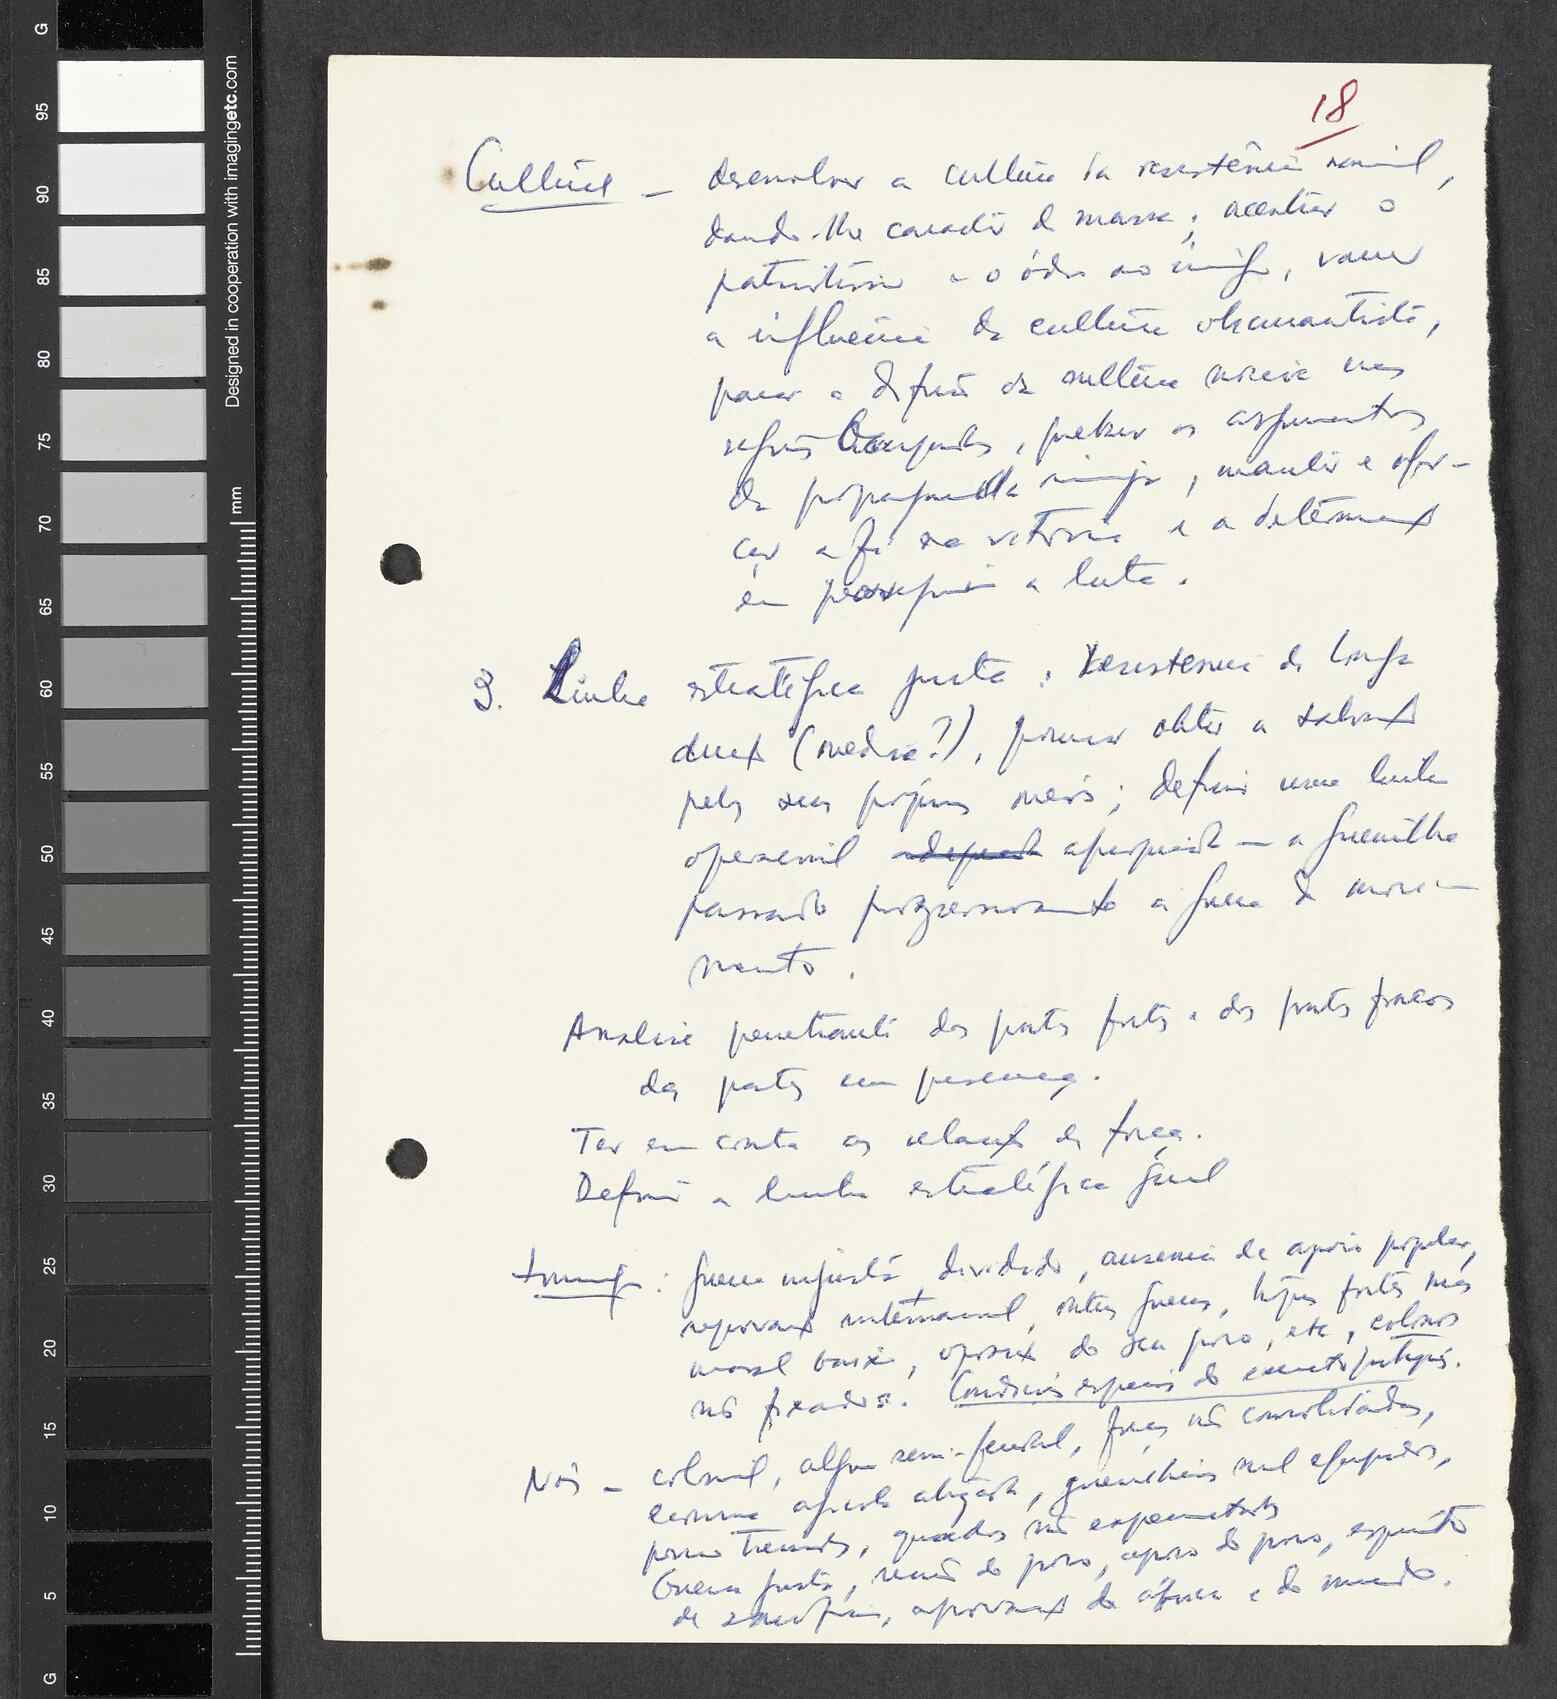 18
Cultura — desenvolver a cultura da resistência nacional,
dando-lhe caracter de massa; acentuar o
patriotismo e o ódio ao inimigo, vencer
a influência da cultura obscurantista,
parar a difusão da cultura nociva nas
regiões ocupadas, quebrar os argumentos
da propaganda inimiga, manter e refor-
çar a fé na vitória e a determinação
em prosseguir a luta.
3. Linha estratégica justa: Resistencia de longa
duração (media?), procurar obter a salvação
pelos seus próprios meios; definir uma linha
operacional apropriada — a guerrilha
passando progressivamente à guerra de movi-
mento.
Analise penetrante dos pontos fortes e dos pontos fracos
das partes em presença.
Ter em conta as relações de força.
Definir a linha estratégica geral
Inimigo: guerra injusta, dividido, ausencia de apoio popular,
reprovação internacional, outras guerras, tropas fortes mas
moral baixo, oposição do seu povo, etc, colonos
não fixados. Condições especiais do exercito português.
Nós — colonial, algo semi-feudal, forças não consolidadas,
economia agricola atrazada, guerrilheiros mal equipados,
pouco treinados, quadros não experimentados
Guerra justa, união do povo, apoio do povo, espirito
de sacrificio, aprovação da África e do mundo.
Designed in cooperation with imagingetc.com
mm
G
95
90
85
80
75
70
65
60
55
50
45
40
35
30
25
20
15
10
5
G